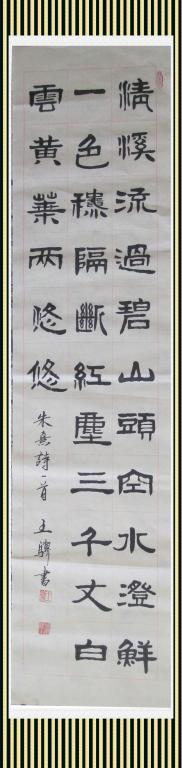 清溪流過碧山頭空水澄鮮
一色穐隔斷紅塵三千丈白
雲黃葉两悠悠
朱熹詩一首 王 書